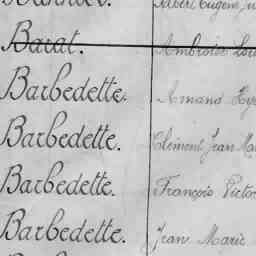 Barat. Ambroise
Barbedette. Amand
Barbedette. Clément Jean
Barbedette. François Victor
Barbedette. Jean Marie